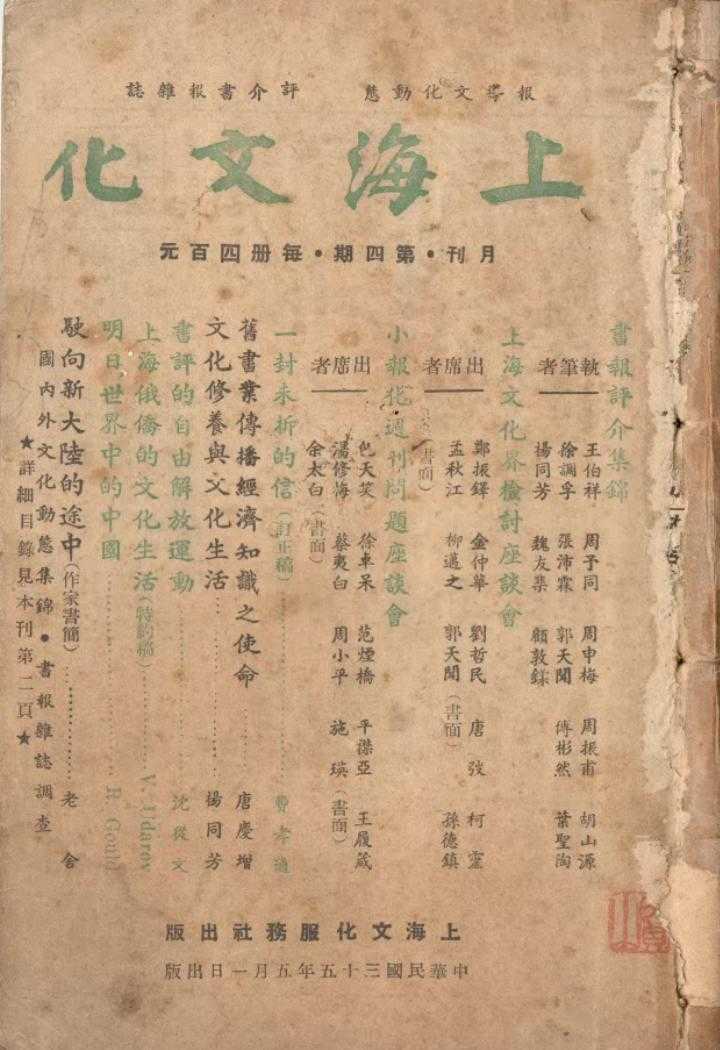 報導文化動態　評介書報雜誌
上海文化
月刊·第四期·每册四百元
書報評介集錦
執筆者
王伯祥　周予同　周申梅　周振甫　胡山源
徐調孚　張沛霖　郭天聞　傅彬然　葉聖陶
楊同芳　魏友棐　顧敦鍒
上海文化界檢討座談會
出席者
鄭振鐸　金仲華　劉哲民　唐弢　柯靈
孟秋江　柳邁之　郭天聞（書面）　孫德鎮
（書面）
小報化週刊問題座談會
出席者
包天笑　徐卓呆　范煙橋　平襟亞　王履箴
潘修海　蔡夷白　周小平　施瑛（書面）
余太白（書面）
一封未拆的信（訂正稿）…………費孝通
舊書業傳播經濟知識之使命　唐慶增
文化修養與文化生活…………楊同芳
書評的自由解放運動…………沈從文
上海俄僑的文化生活（特約稿）…………V. Udarov
明日世界中的中國…………R. Gould
駛向新大陸的途中（作家書簡）…………老舍
國內外文化動態集錦·書報雜誌調查
★詳細目錄見本刊第二頁★
上海文化服務社出版
中華民國三十五年五月一日出版